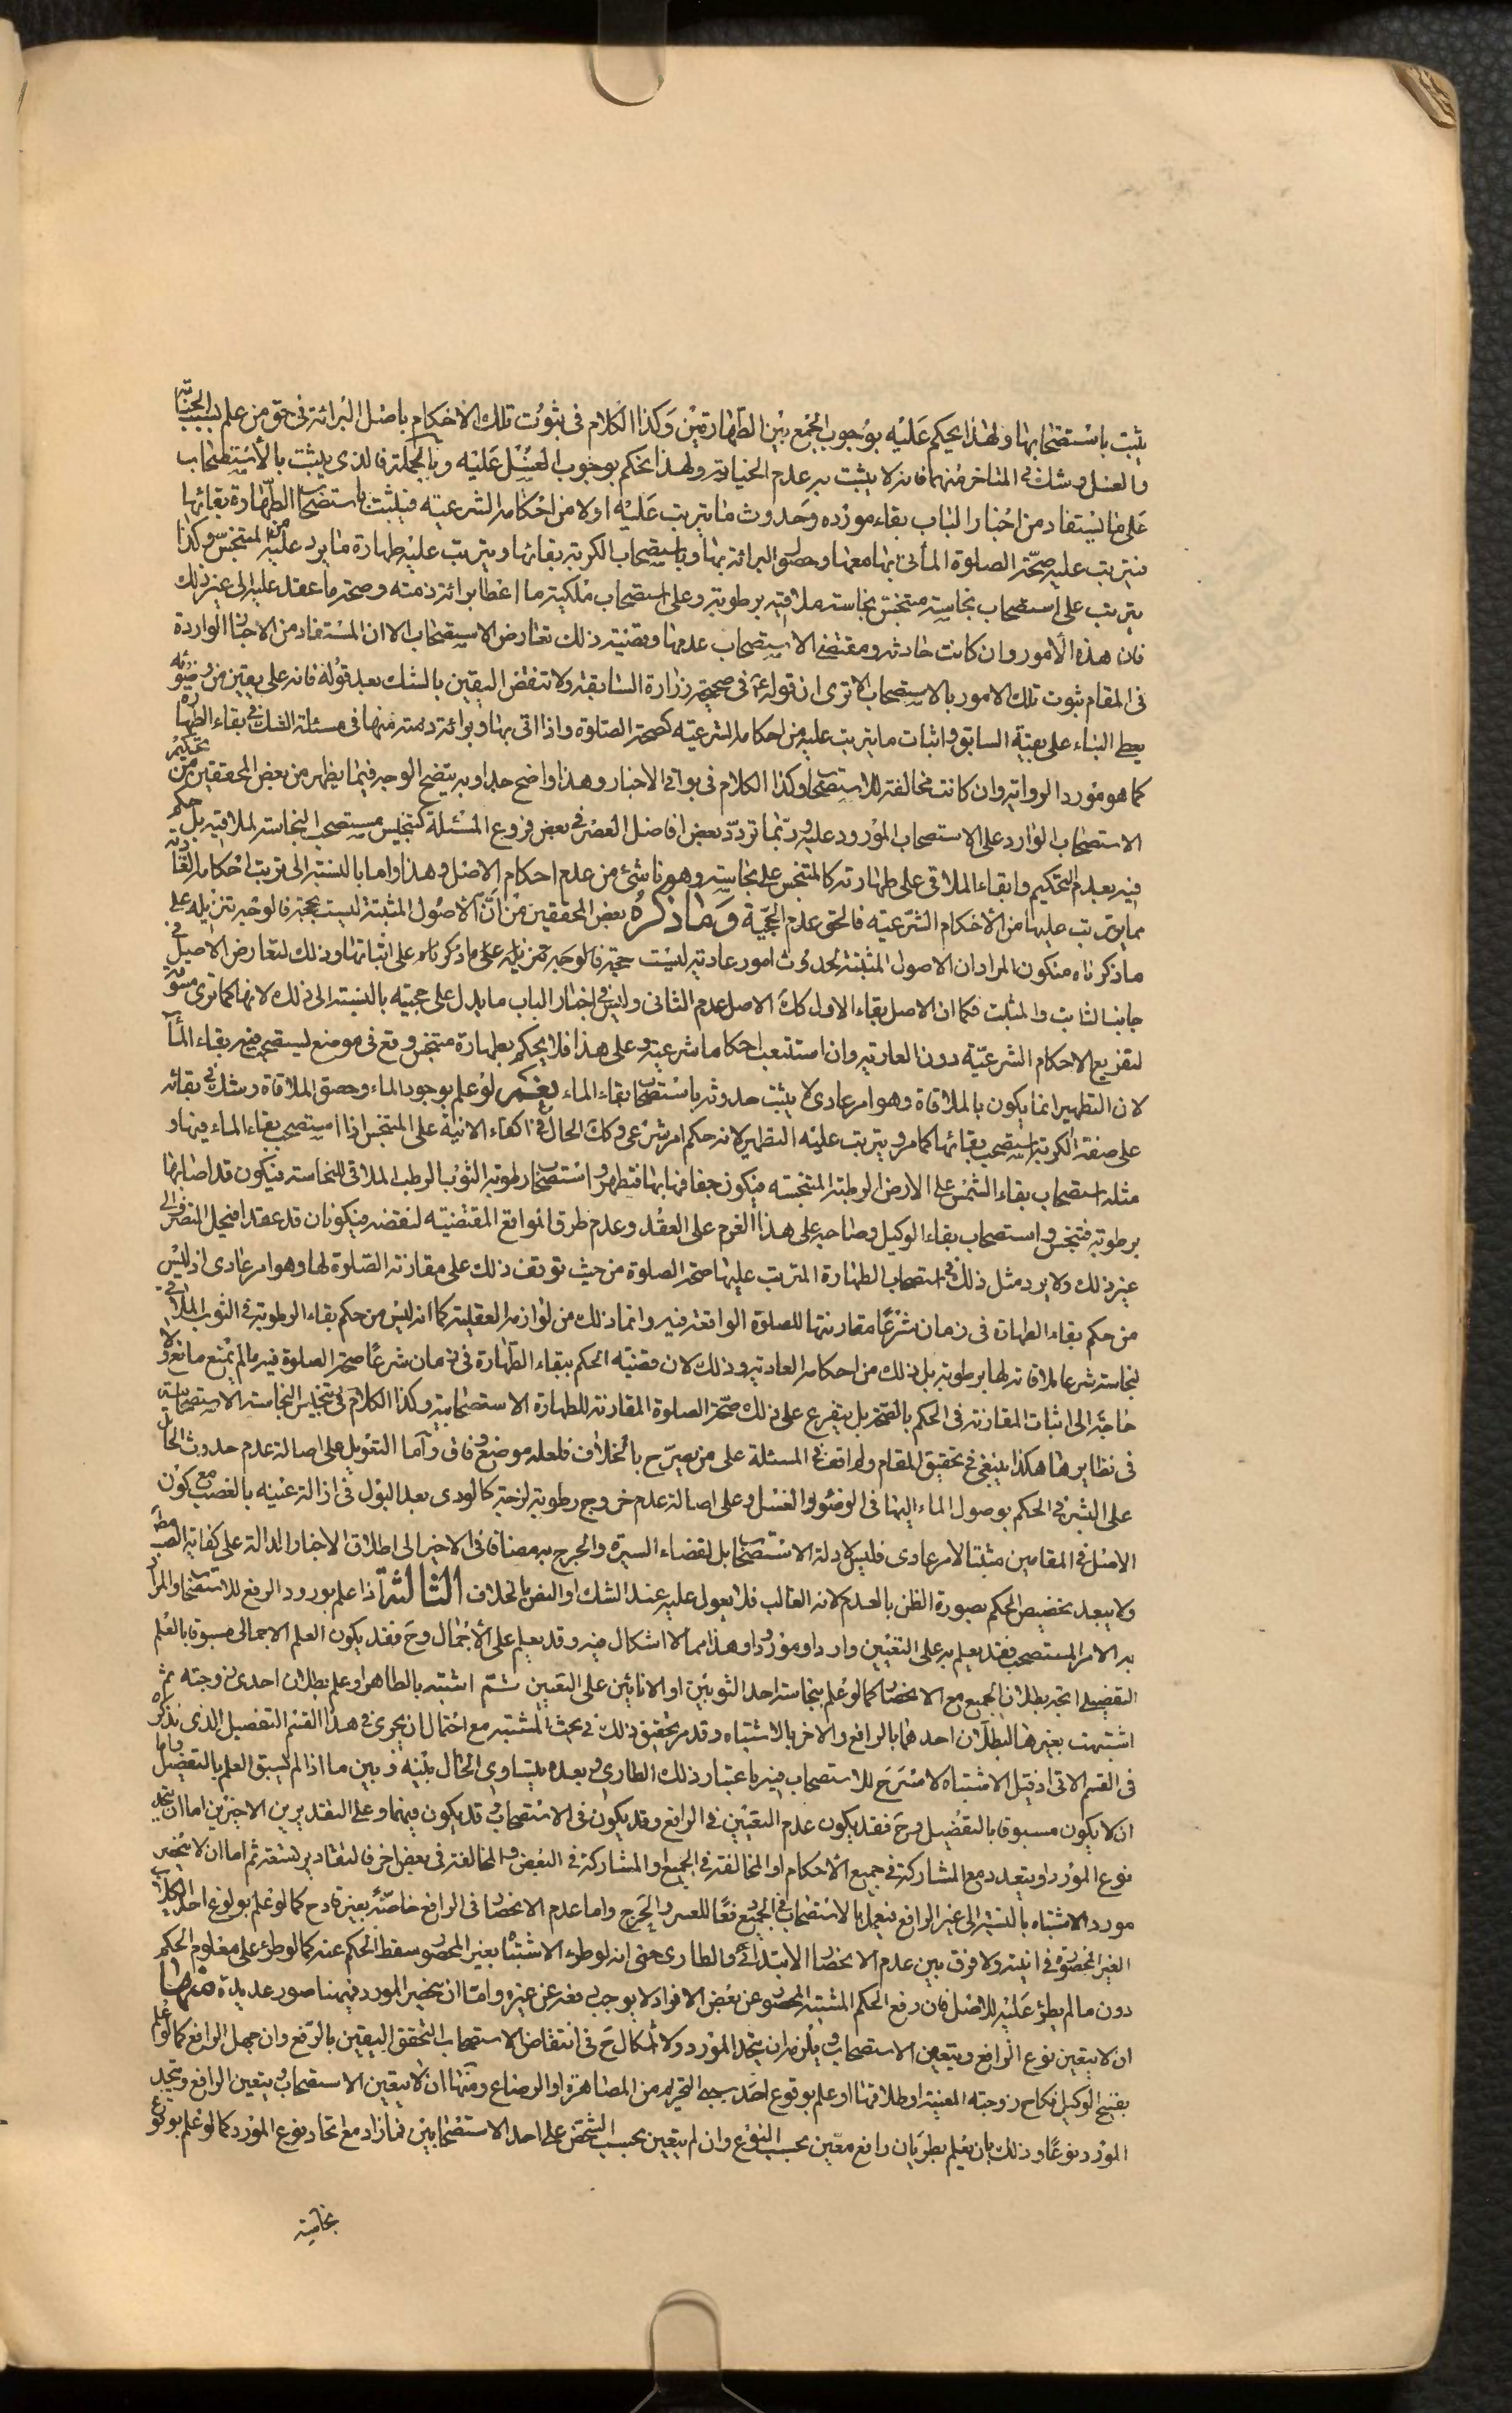 يثبت باستصحابها ولهذا يحكم عليه بوجوب الجمع بين الطهارتين وكذا الكلام في ثبوت تلك الاحكام باصل البرائة في حق من علم بسبب الجنابة
والغسل وشك في المتاخر منهما فانه لا يثبت به عدم الجنابة ولهذا نحكم بوجوب الغسل عليه وبالجملة فالذي يثبت بالاستصحاب
على ما يستفاد من اخبار الباب بقاء مورده وحدوث ما يترتب عليه اولا من احكامه الشرعيه فيثبت باستصحاب الطهارة بقائها
فيترتب عليه صحة الصلوة الماتى بها معها وحصول البرائة بها وباستصحاب الكرية بقائها ويترتب عليه طهارة ما يرد عليه من المتنجس وكذا
يترتب على استصحاب نجاسة متنجس نجاسة ملاقيه برطوبة وعلى استصحاب ملكية ما اعطا برائة ذمته وصحة ما عقد عليه الى غير ذلك
فان هذه الامور وان كانت حادثه ومقتضى الاستصحاب عدمها وقضية ذلك تعارض الاستصحاب الا ان المستفاد من الاخبار الواردة
في المقام ثبوت تلك الامور بالاستصحاب الا ترى ان قوله ع في صحيحة زرارة السابقة ولا تنقض اليقين بالشك بعد قوله فانه على يقين من وضوئه
يعطى البناء على يقينه السابق واثبات ما يترتب عليه من احكامه الشرعيه كصحة الصلوة اذا اتى بها وبرائة ذمته منها في مسئلة الشك في بقاء الطهارة
كما هو مورد الرواية وان كانت مخالفة للاستصحاب وكذا الكلام في بواقى الاخبار وهذا واضح جدا وبه يتضح الوجه فيما يظهر من بعض المحققين من تحكيم
الاستصحاب الوارد على الاستصحاب المورود عليه وربما تردد بعض افاضل العصر في بعض فروع المسئلة كتنجيس مستصحب النجاسة لملاقيه بل حكم
فيه بعدم التحكيم وابقاء الملاقى على طهارته كالمتنجس على نجاسته وهو ناشئ من عدم احكام الاصل هذا واما بالنسبة الى ترتب احكامه العادية
مما يترتب عليها من الاحكام الشرعيه فالحق عدم الحجية وما ذكره بعض المحققين من ان الاصول المثبتة ليست بحجة فالوجه تنزيله على
ما ذكرناه فيكون المراد ان الاصول المثبتة لحدوث امور عادية ليست حجة فالوجه تنزيله على ما ذكرناه على اثباتها وذلك لتعارض الاصل في
جانب الثابت والمثبت فكما ان الاصل بقاء الاول كك الاصل عدم الثانى وليس في اخبار الباب ما يدل على حجيته بالنسبة الى ذلك لانها كما ترى مسوقة
لتفريع الاحكام الشرعية دون العادية وان استتبعت احكاما شرعية وعلى هذا فلا يحكم بطهارة متنجس وقع في موضع يستصحب فيه بقاء الماء
لان التطهير انما يكون بالملاقاة وهو امر عادى لا يثبت حدوثه باستصحاب بقاء الماء نعم لو علم بوجود الماء وحصول الملاقاة وشك في بقائه
على صفة الكرية استصحب بقائها كما مر ويترتب عليه التطهير لانه حكم امر شرعى وكك الحال في اكفاء الانية على المتنجس اذا استصحب بقاء الماء فيها و
مثله استصحاب بقاء الشمس على الارض الرطبة المتنجسه فيكون جفافها بها فتطهر واستصحاب رطوبة الثوب الرطب الملاقى للنجاسة فيكون قد اصابها
برطوبة فتنجس واستصحاب بقاء الوكيل وصاحبه على هذا الغرم على العقد وعدم طرق الموانع المقتضية لنقضه فيكونان قد عقدا فيحل التصرف الى
غير ذلك ولا يرد مثل ذلك في استصحاب الطهارة المترتب عليها صحة الصلوة من حيث توقف ذلك على مقارنة الصلوة لها وهو امر عادى اذ ليس
من حكم بقاء الطهارة في زمان شرعا مقارنتها للصلوة الواقعة فيه وانما ذلك من لوازمه العقلية كما انه ليس من حكم بقاء الرطوبة في الثوب الملاقى
لنجاسة شرعا ملاقاته لها برطوبة بل ذلك من احكامه العادية وذلك لان قضية الحكم ببقاء الطهارة في زمان شرعا صحة الصلوة فيه ما لم يمنع مانع ولا
حاجة الى اثبات المقارنة في الحكم بالصحة بل يتفرع على ذلك صحة الصلوة المقارنة للطهارة الاستصحابية وكذا الكلام في تنجيس النجاسة الاستصحابية
في نظايرها هكذا ينبغى تحقيق المقام ولم اقف في المسئلة على من يصرح بالخلاف فلعله موضع وفاق واما التعويل على اصالة عدم حدوث الحائل
على البشرة في الحكم بوصول الماء اليها في الوضوء والغسل وعلى اصالة عدم خروج رطوبة لزجة كالودى بعد البول في ازالة عينه بالغصب مع كون
الاصل في المقامين مثبتا لامر عادى فليس لادلة الاستصحاب بل لقضاء السيرة والحرج به مضافا في الاخير الى اطلاق الاخبار الدالة على كفاية الصب مط
ولا يبعد تخصيص الحكم بصورة الظن بالعدم لانه الغالب فلا يعول عليه عند الشك او الظن بالخلاف الثالثة اذا علم بورود الرفع للاستصحاب والمراد
به الامر المستصحب فقد يعلم به على التعيين واردا ومورودا وهذا مما لا اشكال فيه وقد يعلم على الاجمال وح فقد يكون العلم الاجمالى مسبوقا بالعلم
التفصيلى اتجه بطلان الجميع مع الانحصار كما لو علم بنجاسة احد الثوبين او الانائين على التعيين ثم اشتبه بالطاهر او علم بطلاق احدى زوجته ثم
اشتبهت بغيرها لبطلان احدهما بالرافع والاخر بالاشتباه وقد مر تحقيق ذلك في بحث المشتبه مع احتمال ان يجرى في هذا القسم التفصيل الذى نذكره
في القسم الاتى اذ قبل الاشتباه لا مسرح للاستصحاب فيه باعتبار ذلك الطارى وبعده يتساوى الحال بينه وبين ما اذا لم يسبق العلم بالتفصيل واما
ان لا يكون مسبوقا بالتفصيل وح فقد يكون عدم التعيين في الرافع وقد يكون في الاستصحاب وقد يكون فيهما وعلى التقديرين الاخيرين اما ان يتحد
نوع المورد او يتعدد مع المشاركة في جميع الاحكام او المخالفة في الجميع او المشاركة في البعض والمخالفة في بعض اخر فالتقادير تسعة ثم اما ان لا ينحصر
مورد الاشتباه بالنسبة الى غير الرافع فيعمل بالاستصحاب في الجميع دفعا للعسر والحرج واما عدم الانحصار في الرافع خاصة فغير قادح كما لو علم بولوغ احد الكلاب
الغير المحصورة في انية ولا فرق بين عدم الانحصار الابتدائى والطارى حتى انه لو طرء الاشتباه بغير المحصور سقط الحكم عنه كما لو طرء على معلوم الحكم
دون ما لم يطرء عليه للاصل فان رفع الحكم المشتبه المحصور عن بعض الافراد لا يوجب رفعه عن غيره واما ان ينحصر المورد فهنا صور عديدة منها
ان لا يتعين نوع الرافع ويتعين الاستصحاب ويلزمه ان يتحد المورد ولا اشكال ح في انتقاض الاستصحاب لتحقق اليقين بالرفع وان جهل الرافع كما لو علم
بفسخ الوكيل نكاح زوجته المعينة او طلاقها او علم بوقوع احد سببى التحريم من المصاهرة او الرضاع ومنها ان لا يتعين الاستصحاب ويتعين الرافع ويتحد
المورد نوعا وذلك بان يعلم بطريان رافع معين بحسب النوع وان لم يتعين بحسب الشخص على احد الاستصحابين فما زاد مع اتحاد نوع المورد كما لو علم بوقوع
نجاسة